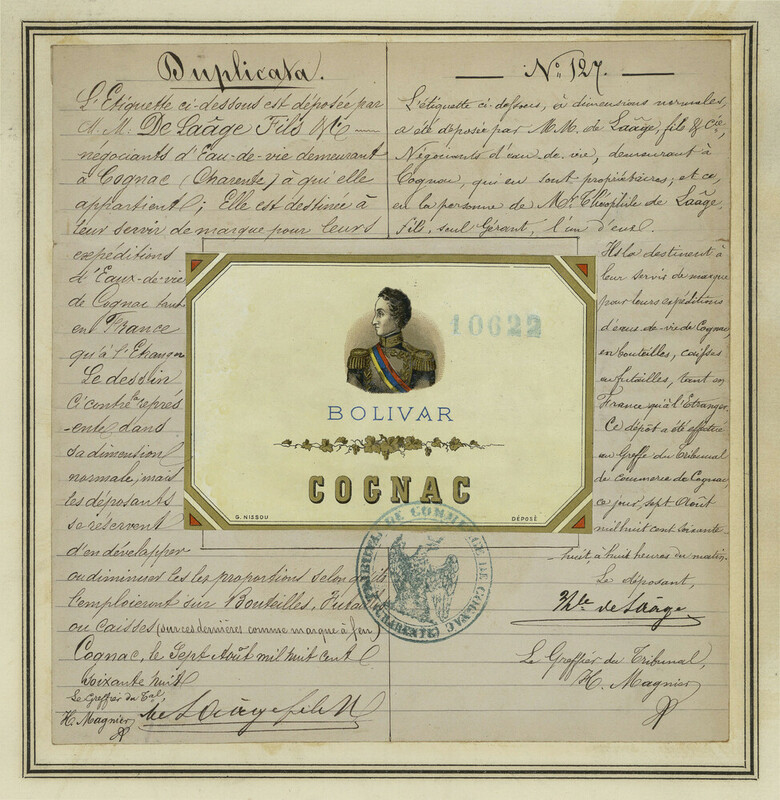 Duplicata.
L'Etiquette ci-dessous est déposée par
M.M. De Laâge Fils & Cie
négociants d'Eau-de-vie demeurant
à Cognac (Charente) à qui elle
appartient; Elle est destinée à
leur servir de marque pour leurs
expéditions
d'Eaux-de-vie
de Cognac tant
en France
qu'à l'Etranger
Le dessin
ci contre la représ
-ente dans
sa dimension
normale, mais
les déposants
se réservent
d'en développer
ou diminuer les proportions selon
l'emploieront sur Bouteilles,
ou Caisses (sur ces dernières comme marque à feu)
Cognac, le Sept Août mil huit cent
soixante huit
Le Greffier du Tal,
H. Magnier
de Laâge fils &
No. 127.
L'étiquette ci-dessous, à dimensions normales,
a été déposée par M.M. de Laâge, fils & Cie,
Négociants d'eau-de-vie, demeurant à
Cognac, qui en sont propriétaires, et ce,
en la personne de Mr. Théophile de Laâge
fils, seul Gérant, l'un d'eux.
Ils la destinent à
leur servir de marque
pour leurs expéditions
d'eaux-de-vie de Cognac,
en bouteilles, caisses
ou futailles, tant en
France qu'à l'Etranger.
Ce dépôt a été effectué
au Greffe du Tribunal
de commerce de Cognac
ce jour, sept Août
mil huit cent soixante-
huit, à huit heures du matin.
Le déposant,
Thle de Laâge
Le Greffier du Tribunal,
H. Magnier
10622
BOLIVAR
COGNAC
G. NISSOU
DÉPOSÉ
TRIBUNAL DE COMMERCE DE COGNAC
(CHARENTE)